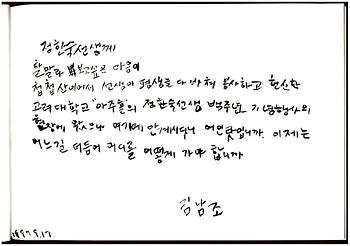 정한숙선생께
할말과 보고싶은 마음이
첩첩산이어서 선생이 평생을 다 바쳐 봉사하고 헌신한
고려대학교 "아주홀"의 정한숙선생 백주년 기념행사의
현장에 왔으나 여기에 안계시니 어인탓입니까. 이제는
어느길 더듬어 어디로 어떻게 가야 합니까
김남조